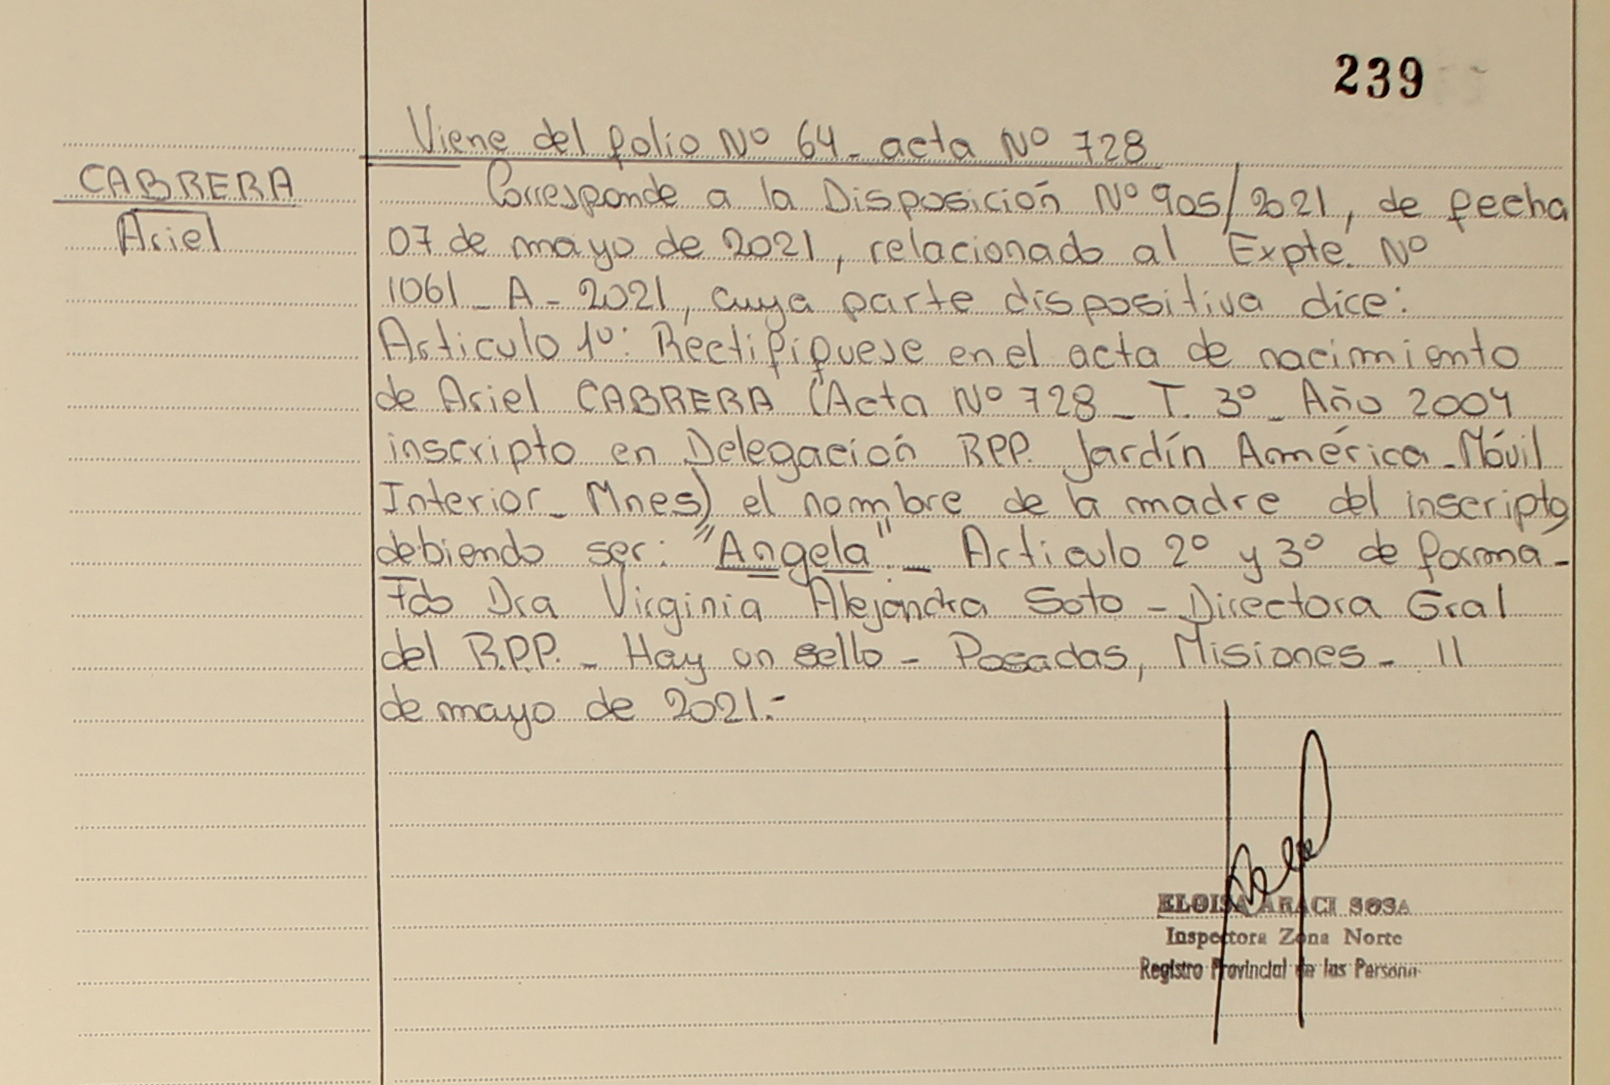 239
Viene del folio Nº 64_ acta Nº 728
CABRERA
Ariel
Corresponde a la Disposición Nº 905/2021, de fecha
07 de mayo de 2021, relacionado al Expte. Nº
1061_A_2021, cuya parte dispositiva dice:
Articulo 1º: Rectifíquese en el acta de nacimiento
de Ariel CABRERA (Acta Nº 728_ T. 3º_ Año 2004
inscripto en Delegación RPP. Jardín América_Móvil
Interior_ Mnes) el nombre de la madre del inscripto
debiendo ser: "Angela"._ Articulo 2º y 3º de forma_
Fdo Dra Virginia Alejandra Soto_ Directora Gral
del R.P.P._ Hay un sello_ Posadas, Misiones_ 11
de mayo de 2021.-
ELOISA ARACI SOSA
Inspectora Zona Norte
Registro Provincial de las Persona